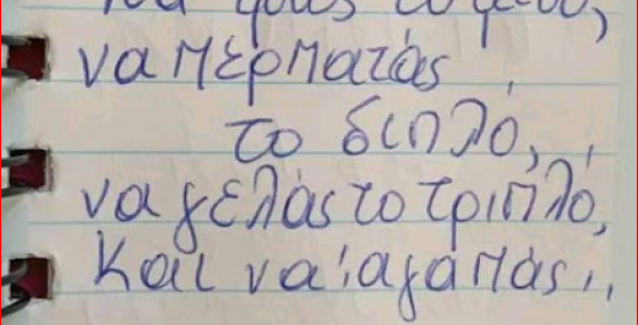 να πέρπατάς,
το διπλό,
να γελάς το τριπλό,
Και να! αγαπάς..